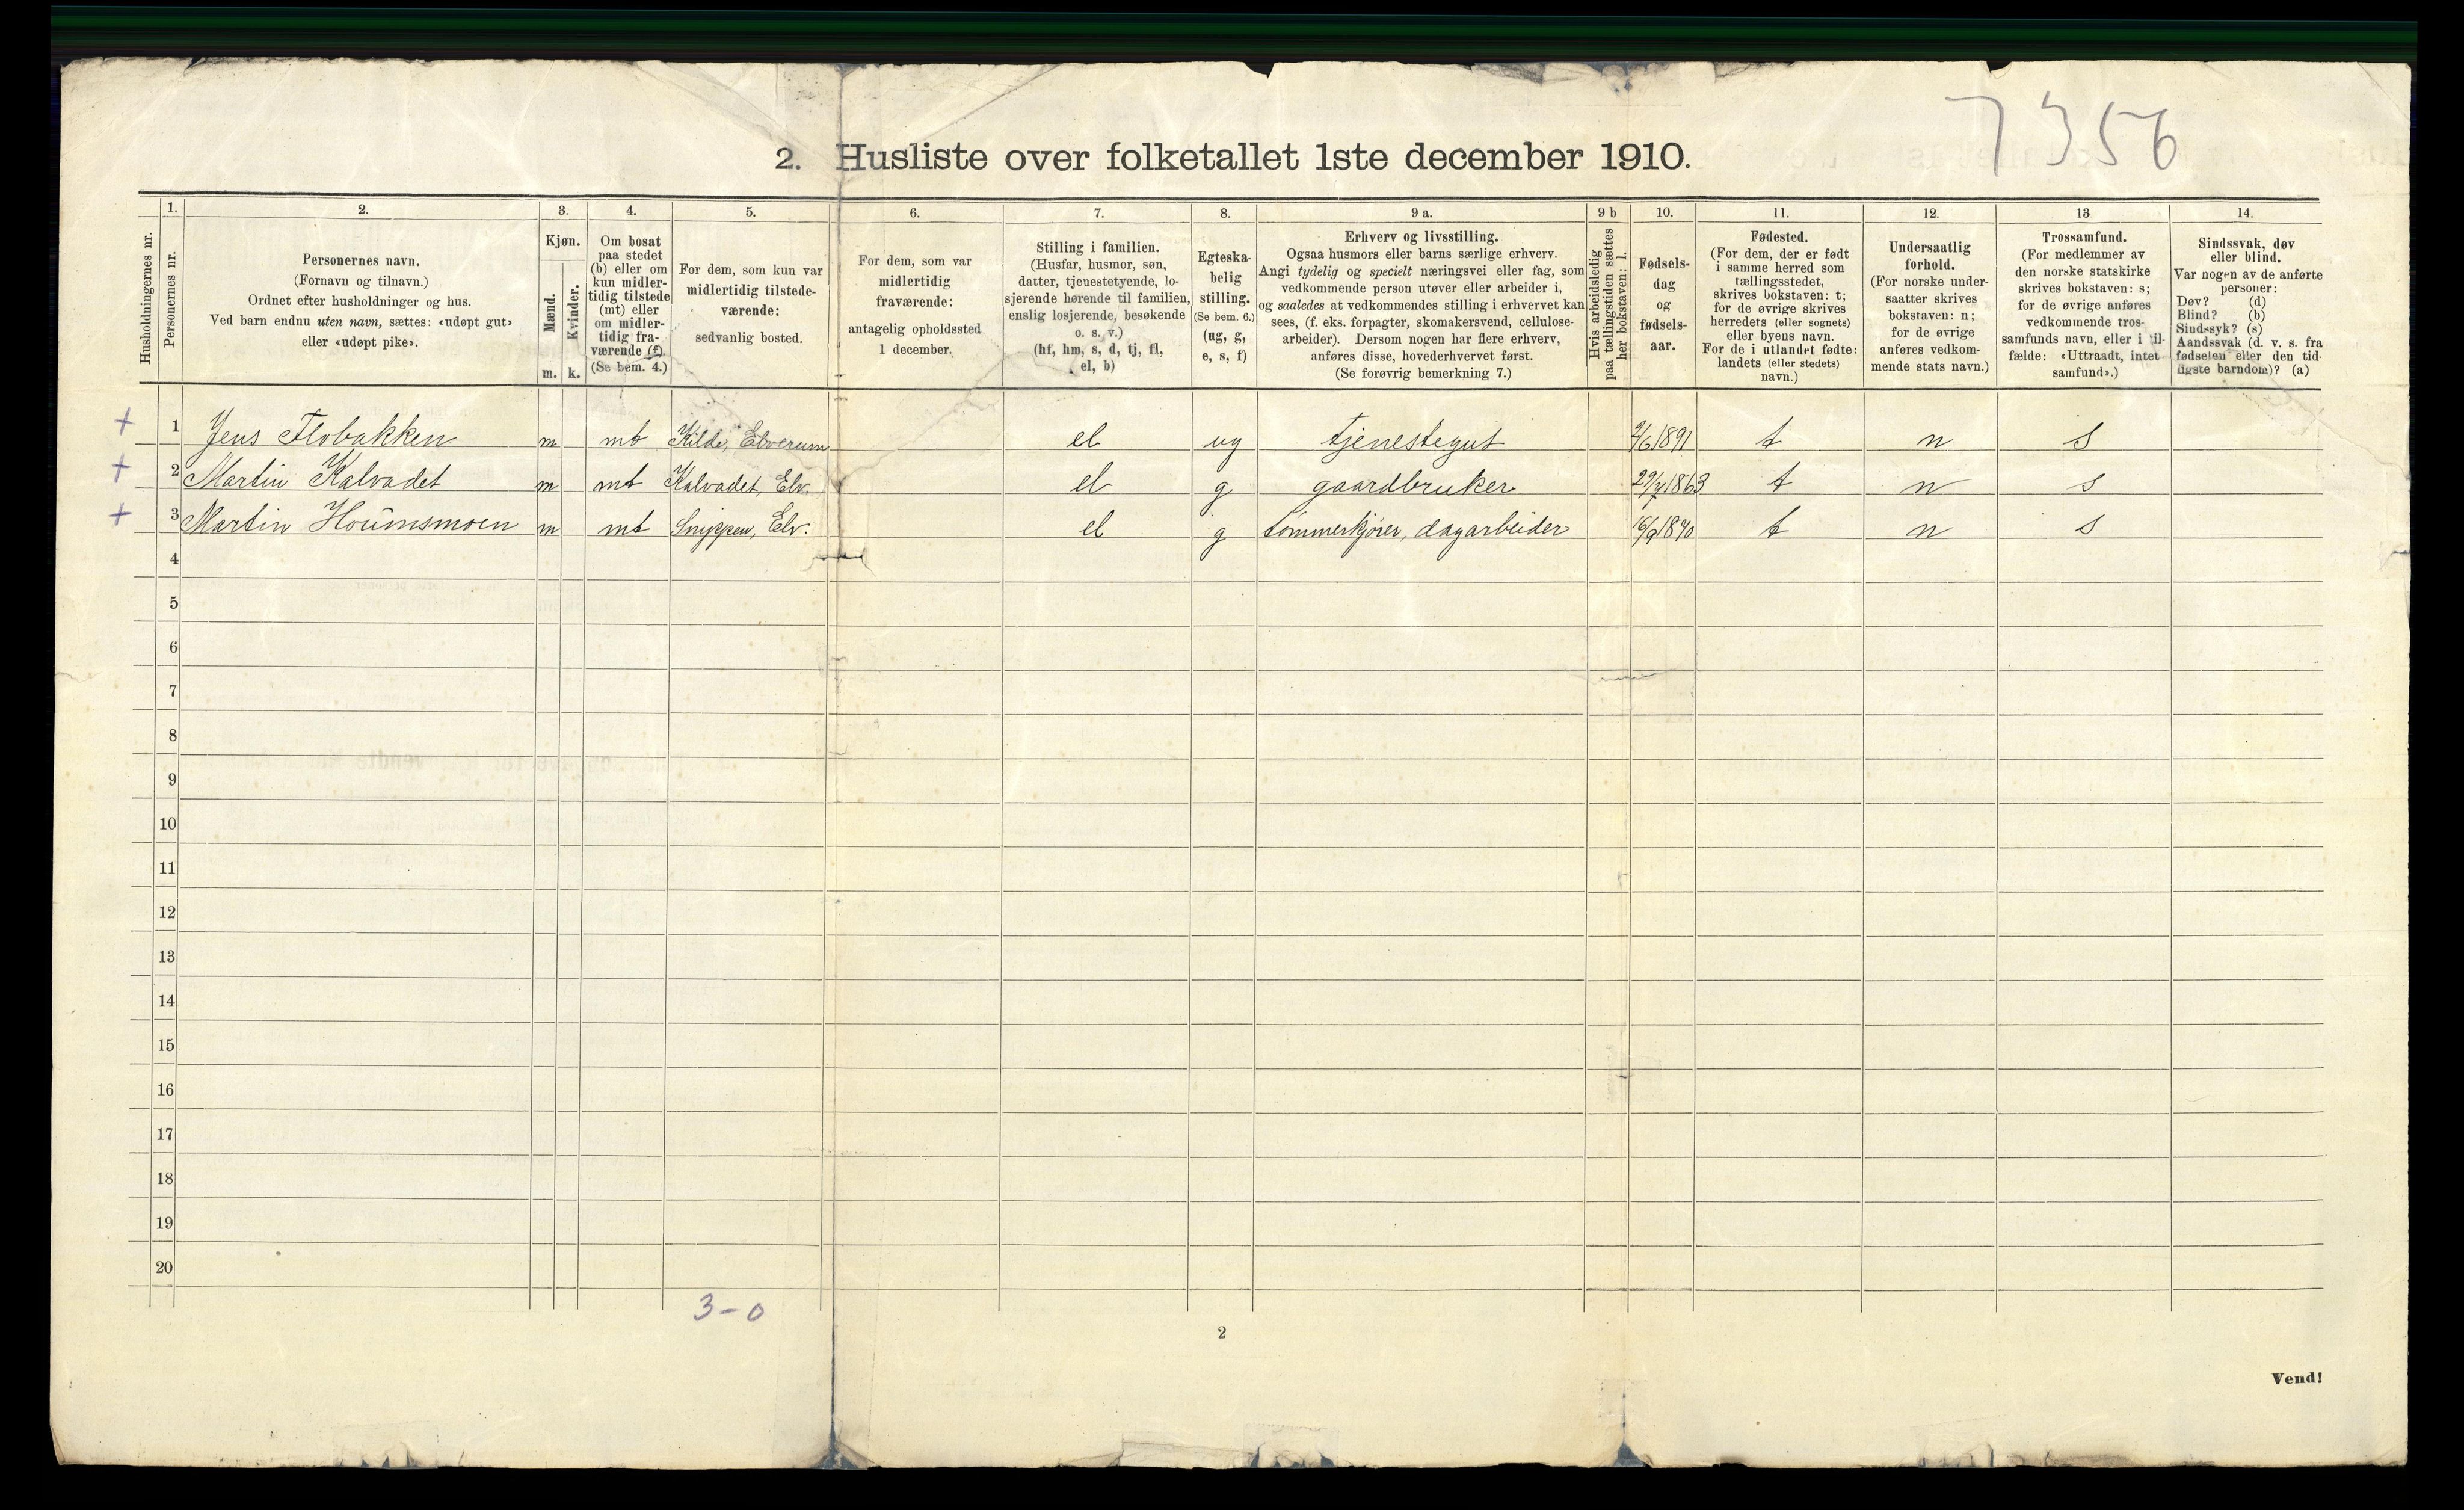 7356
2. Husliste over folketallet 1ste december 1910.
Husholdningernes nr.
1.
Personernes nr.
2.
Personernes navn.
(Fornavn og tilnavn.)
Ordnet efter husholdninger og hus.
Ved barn endnu uten navn, sættes: «udøpt gut»
eller «udøpt pike».
3.
Kjøn.
Mænd.
Kvinder.
m. k.
4.
Om bosat
paa stedet
(b) eller om
kun midler-
tidig tilstede
(mt) eller
om midler-
tidig fra-
værende (f).
(Se bem. 4.)
5.
For dem, som kun var
midlertidig tilstede-
værende:
sedvanlig bosted.
6.
For dem, som var
midlertidig
fraværende:
antagelig opholdssted
1 december.
7.
Stilling i familien.
(Husfar, husmor, søn,
datter, tjenestetyende, lo-
sjerende hørende til familien,
enslig losjerende, besøkende
o. s. v.)
(hf, hm, s, d, tj, fl,
el, b)
8.
Egteska-
belig
stilling.
(Se bem. 6.)
(ug, g,
e, s, f)
9 a.
Erhverv og livsstilling.
Ogsaa husmors eller barns særlige erhverv.
Angi tydelig og specielt næringsvei eller fag, som
vedkommende person utøver eller arbeider i,
og saaledes at vedkommendes stilling i erhvervet kan
sees, (f. eks. forpagter, skomakersvend, cellulose-
arbeider). Dersom nogen har flere erhverv,
anføres disse, hovederhvervet først.
(Se forøvrig bemerkning 7.)
9 b
Hvis arbeidsledig
paa tællingstiden sættes
her bokstaven: l.
10.
Fødsels-
dag
og
fødsels-
aar.
11.
Fødested.
(For dem, der er født
i samme herred som
tællingsstedet,
skrives bokstaven: t;
for de øvrige skrives
herredets (eller sognets)
eller byens navn.
For de i utlandet fødte:
landets (eller stedets)
navn.)
12.
Undersaatlig
forhold.
(For norske under-
saatter skrives
bokstaven: n;
for de øvrige
anføres vedkom-
mende stats navn.)
13
Trossamfund.
(For medlemmer av
den norske statskirke
skrives bokstaven: s;
for de øvrige anføres
vedkommende tros-
samfunds navn, eller i til-
fælde: «Uttraadt, intet
samfund».)
14.
Sindssvak, døv
eller blind.
Var nogen av de anførte
personer:
Døv? (d)
Blind? (b)
Sindssyk? (s)
Aandssvak (d. v. s. fra
fødselen eller den tid-
ligste barndom)? (a)
+ 1 Jens Flobakken m mt Kilde, Elverum el ug tjenestegut /6 1891 t n s
+ 2 Martin Kalvadet m mt Kalvadet, Elv. el g gaardbruker 29/ 1863 t n s
+ 3 Martin m mt Snippen, Elv. el g tømmerkjører, dagarbeider 16/9 t n s
4
5
6
7
8
9
10
11
12
13
14
15
16
17
18
19
20
3-0
2
Vend!